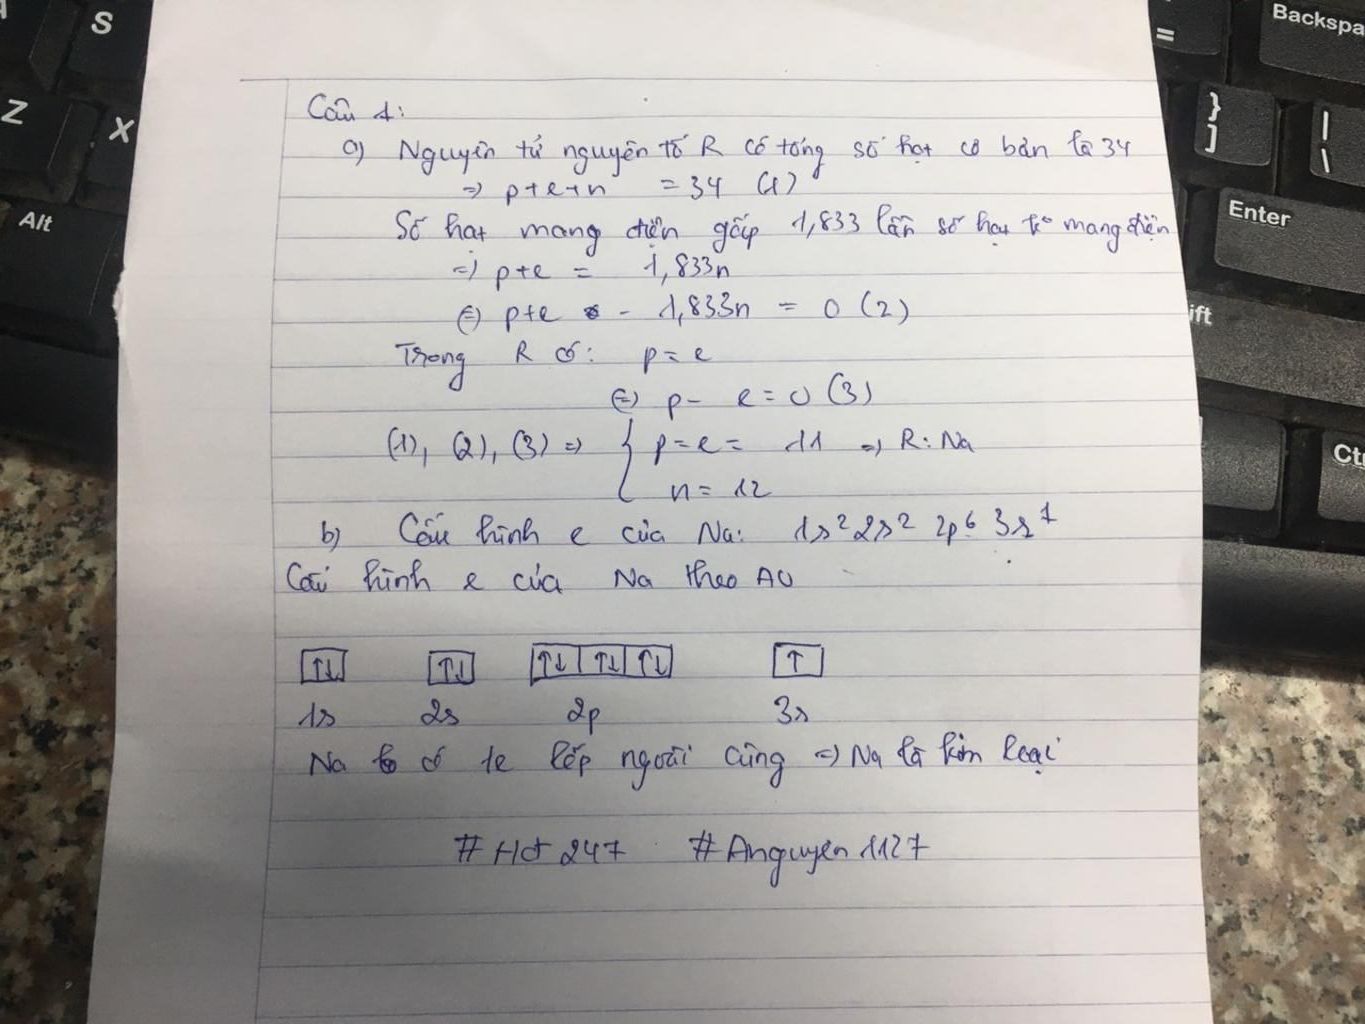 S
Z
X
Alt
Backspa
=
}
]
|
\
Enter
ift
Ct
Câu 1:
a) Nguyên tử nguyên tố R có tổng số hạt cơ bản là 34
=> p+e+n = 34 (1)
Số hạt mang điện gấp 1,833 lần số hạt ko mang điện
=> p+e = 1,833n
(=) p+e - 1,833n = 0 (2)
Trong R có: p=e
(=) p- e=0 (3)
(1), (2), (3) => { p=e= 11 => R: Na
n= 12
b) Cấu hình e của Na: 1s² 2s² 2p⁶ 3s¹
Cấu hình e của Na theo AO
↑↓ ↑↓ ↑↓ ↑↓ ↑↓ ↑
1s 2s 2p 3s
Na có 1e lớp ngoài cùng => Na là kim loại
# Hot 247 # Anguyen 1127